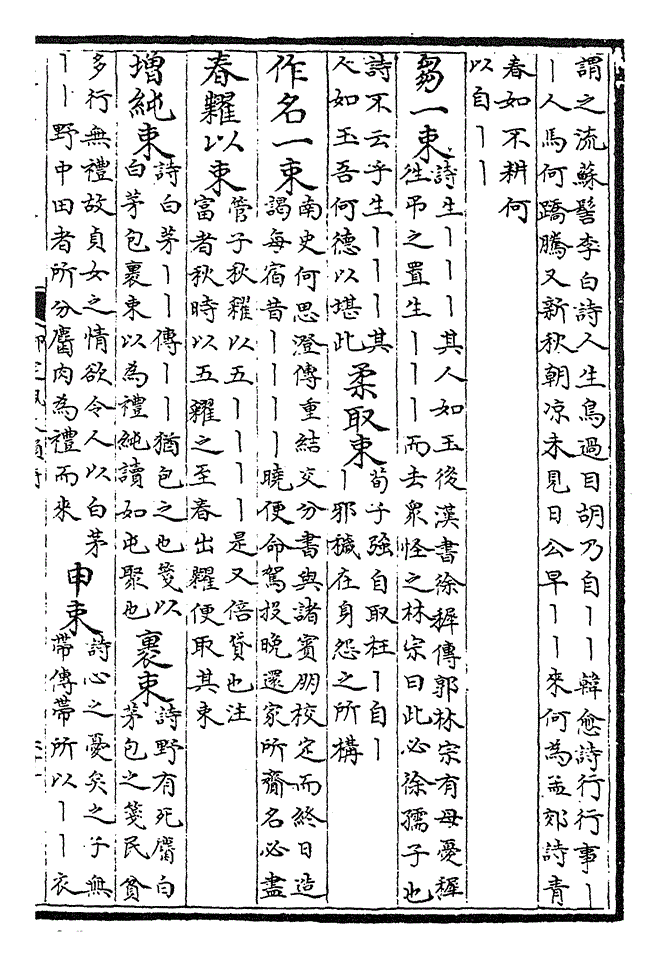 謂之流蘇髻李白詩人生鳥過目胡乃自丨丨韓愈詩行行事丨
丨人馬何蹻騰又新秋朝凉未見日公早丨丨來何為孟郊詩青
春如不耕何
以自丨丨
芻一束
詩生丨丨丨其人如玉後漢書徐穉傳郭林宗有母憂穉
徃弔之置生丨丨丨而去衆怪之林宗曰此必徐孺子也
詩不云乎生丨丨丨其
人如玉吾何德以堪此
柔取束
荀子强自取枉丨自丨
丨邪穢在身怨之所構
作名一束
南史何思澄傳重結交分書與諸賓朋校定而終日造
謁每宿昔丨丨丨丨曉便命駕投晚還家所齎名必盡
春糶以束
管子秋糴以五丨丨丨丨是又倍貸也注
富者秋時以五糴之至春出糶便取其束
增純束
詩白茅丨丨傳丨丨猶包之也箋以
白茅包裹束以為禮純讀如屯聚也
裹束
詩野有死麕白
茅包之箋民貧
多行無禮故貞女之情欲令人以白茅
丨丨野中田者所分麕肉為禮而來
申束
詩心之憂矣之子無
帶傳帶所以丨丨衣